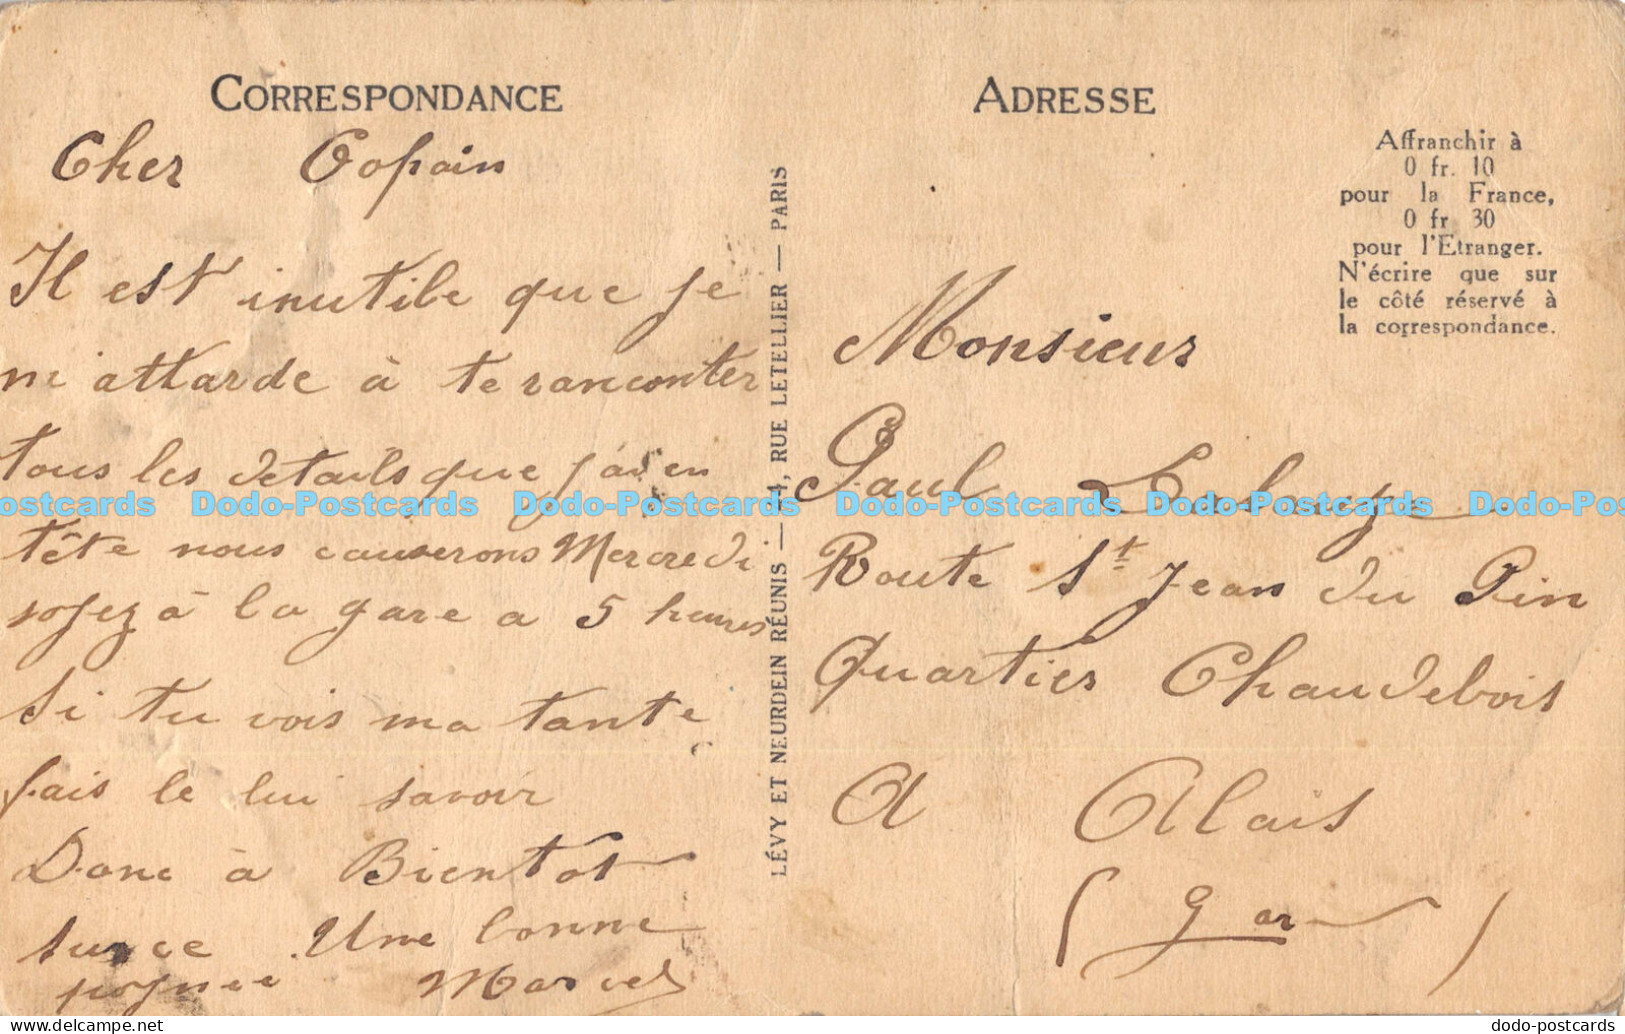 CORRESPONDANCE
Cher Copain
Il est inutile que je
m'attarde à te ranconter
tous les details que j'ai en
tête nous causerons Mercredi
soyez à la gare a 5 heures
Si tu vois ma tante
fais le lui savoir
Donc à Bientot
sur ce Une bonne
pognée Marcel
LÉVY ET NEURDEIN RÉUNIS — 44, RUE LETELLIER — PARIS
ADRESSE
Affranchir à
0 fr. 10
pour la France,
0 fr 30
pour l'Etranger.
N'écrire que sur
le côté réservé à
la correspondance.
Monsieur
Paul
Route St Jean du Pin
Quartier Chaudebois
A Alais
(Gard)
Dodo-Postcards Dodo-Postcards Dodo-Postcards Dodo-Postcards Dodo-Postcards
dodo-postcards
dodo-postcards